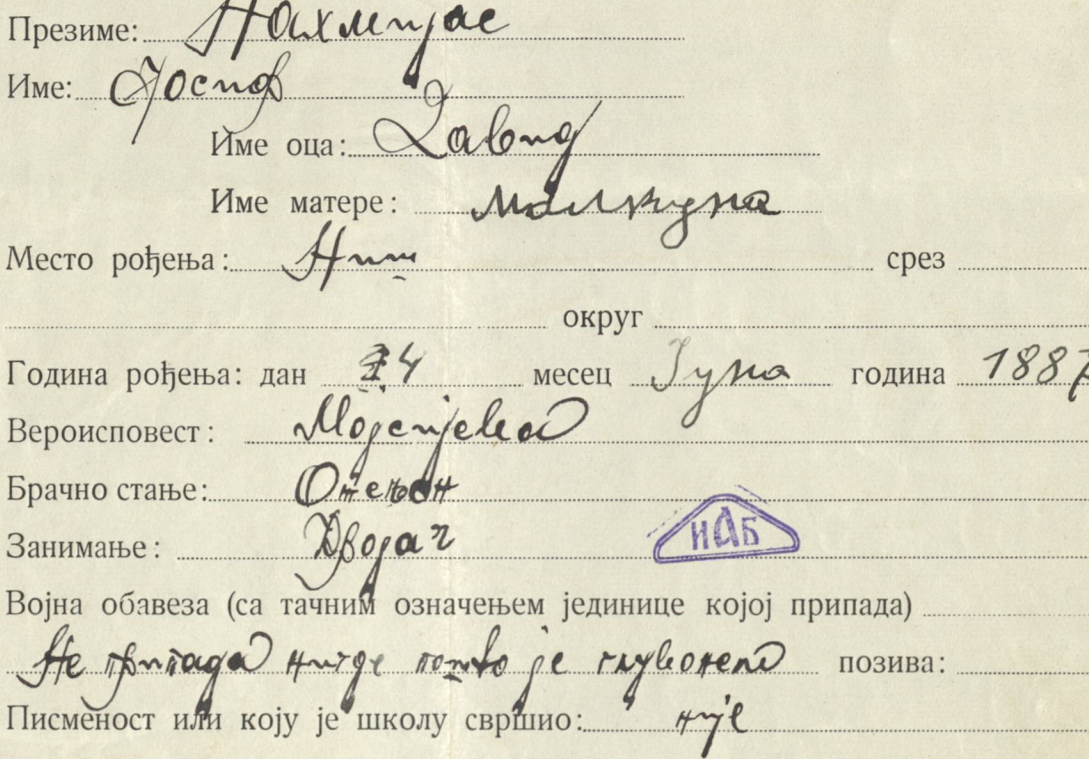 Презиме: Нахмијас
Име: Јосиф
Име оца: Давид
Име матере:
Место рођења: Ниш срез
округ
Година рођења: дан 24 месец Јуна година 1887
Вероисповест: Мојсијева
Брачно стање: Ожењен
Занимање:
ИАБ
Војна обавеза (са тачним означењем јединице којој припада)
Не припада нигде пошто је глувонем позива:
Писменост или коју је школу свршио: није